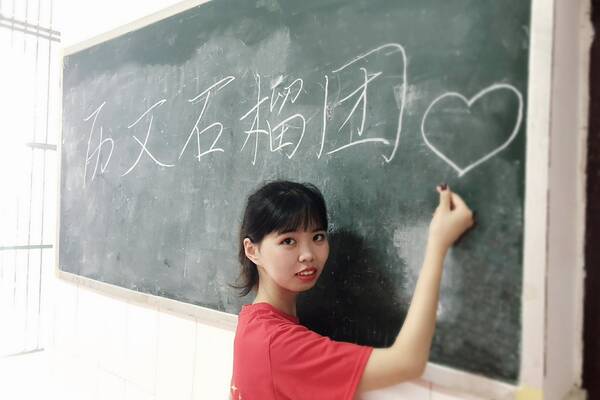 历文石榴团